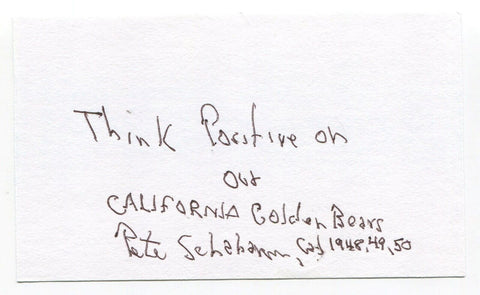 Think Positive on
our
CALIFORNIA Golden Bears
Pete Schabarum, Cal 1948,49,50